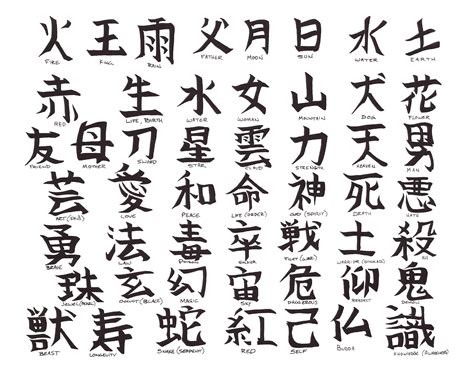 火 王 雨 父 月 日 水 土
FIRE KING RAIN FATHER MOON SUN WATER EARTH
赤 生 水 女 山 犬 花
RED LIFE, BIRTH WATER WOMAN MOUNTAIN DOG FLOWER
友 母 刀 星 雲 力 天 男
FRIEND MOTHER SWORD STAR CLOUD STRENGTH HEAVEN MAN
芸 愛 和 命 神 死 悪
ART (SKILL) LOVE PEACE LIFE (ORDER) GOD (SPIRIT) DEATH HATE
勇 法 毒 卒 戦 士 殺
BRAVE LAW POISON SOLDIER FIGHT (WAR) KILL
珠 玄 幻 宙 危 仰 鬼
JEWEL (PEARL) OCCULT (BLACK) MAGIC SKY DANGEROUS RESPECT DEMON
獣 寿 蛇 紅 己 仏 識
BEAST LONGEVITY SNAKE (SERPENT) RED SELF BUDDA